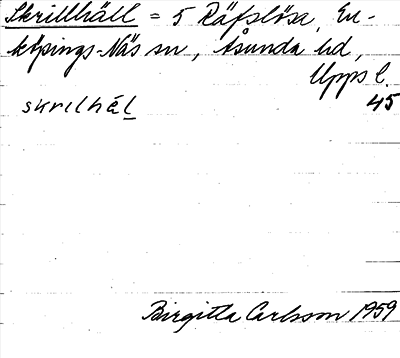 Skrillhäll = 5 Räfslösa, En-
köpings-Näs sn, Åsunda hd,
Upps l.
skrilhäl 45
Birgitta Carlsson 1959